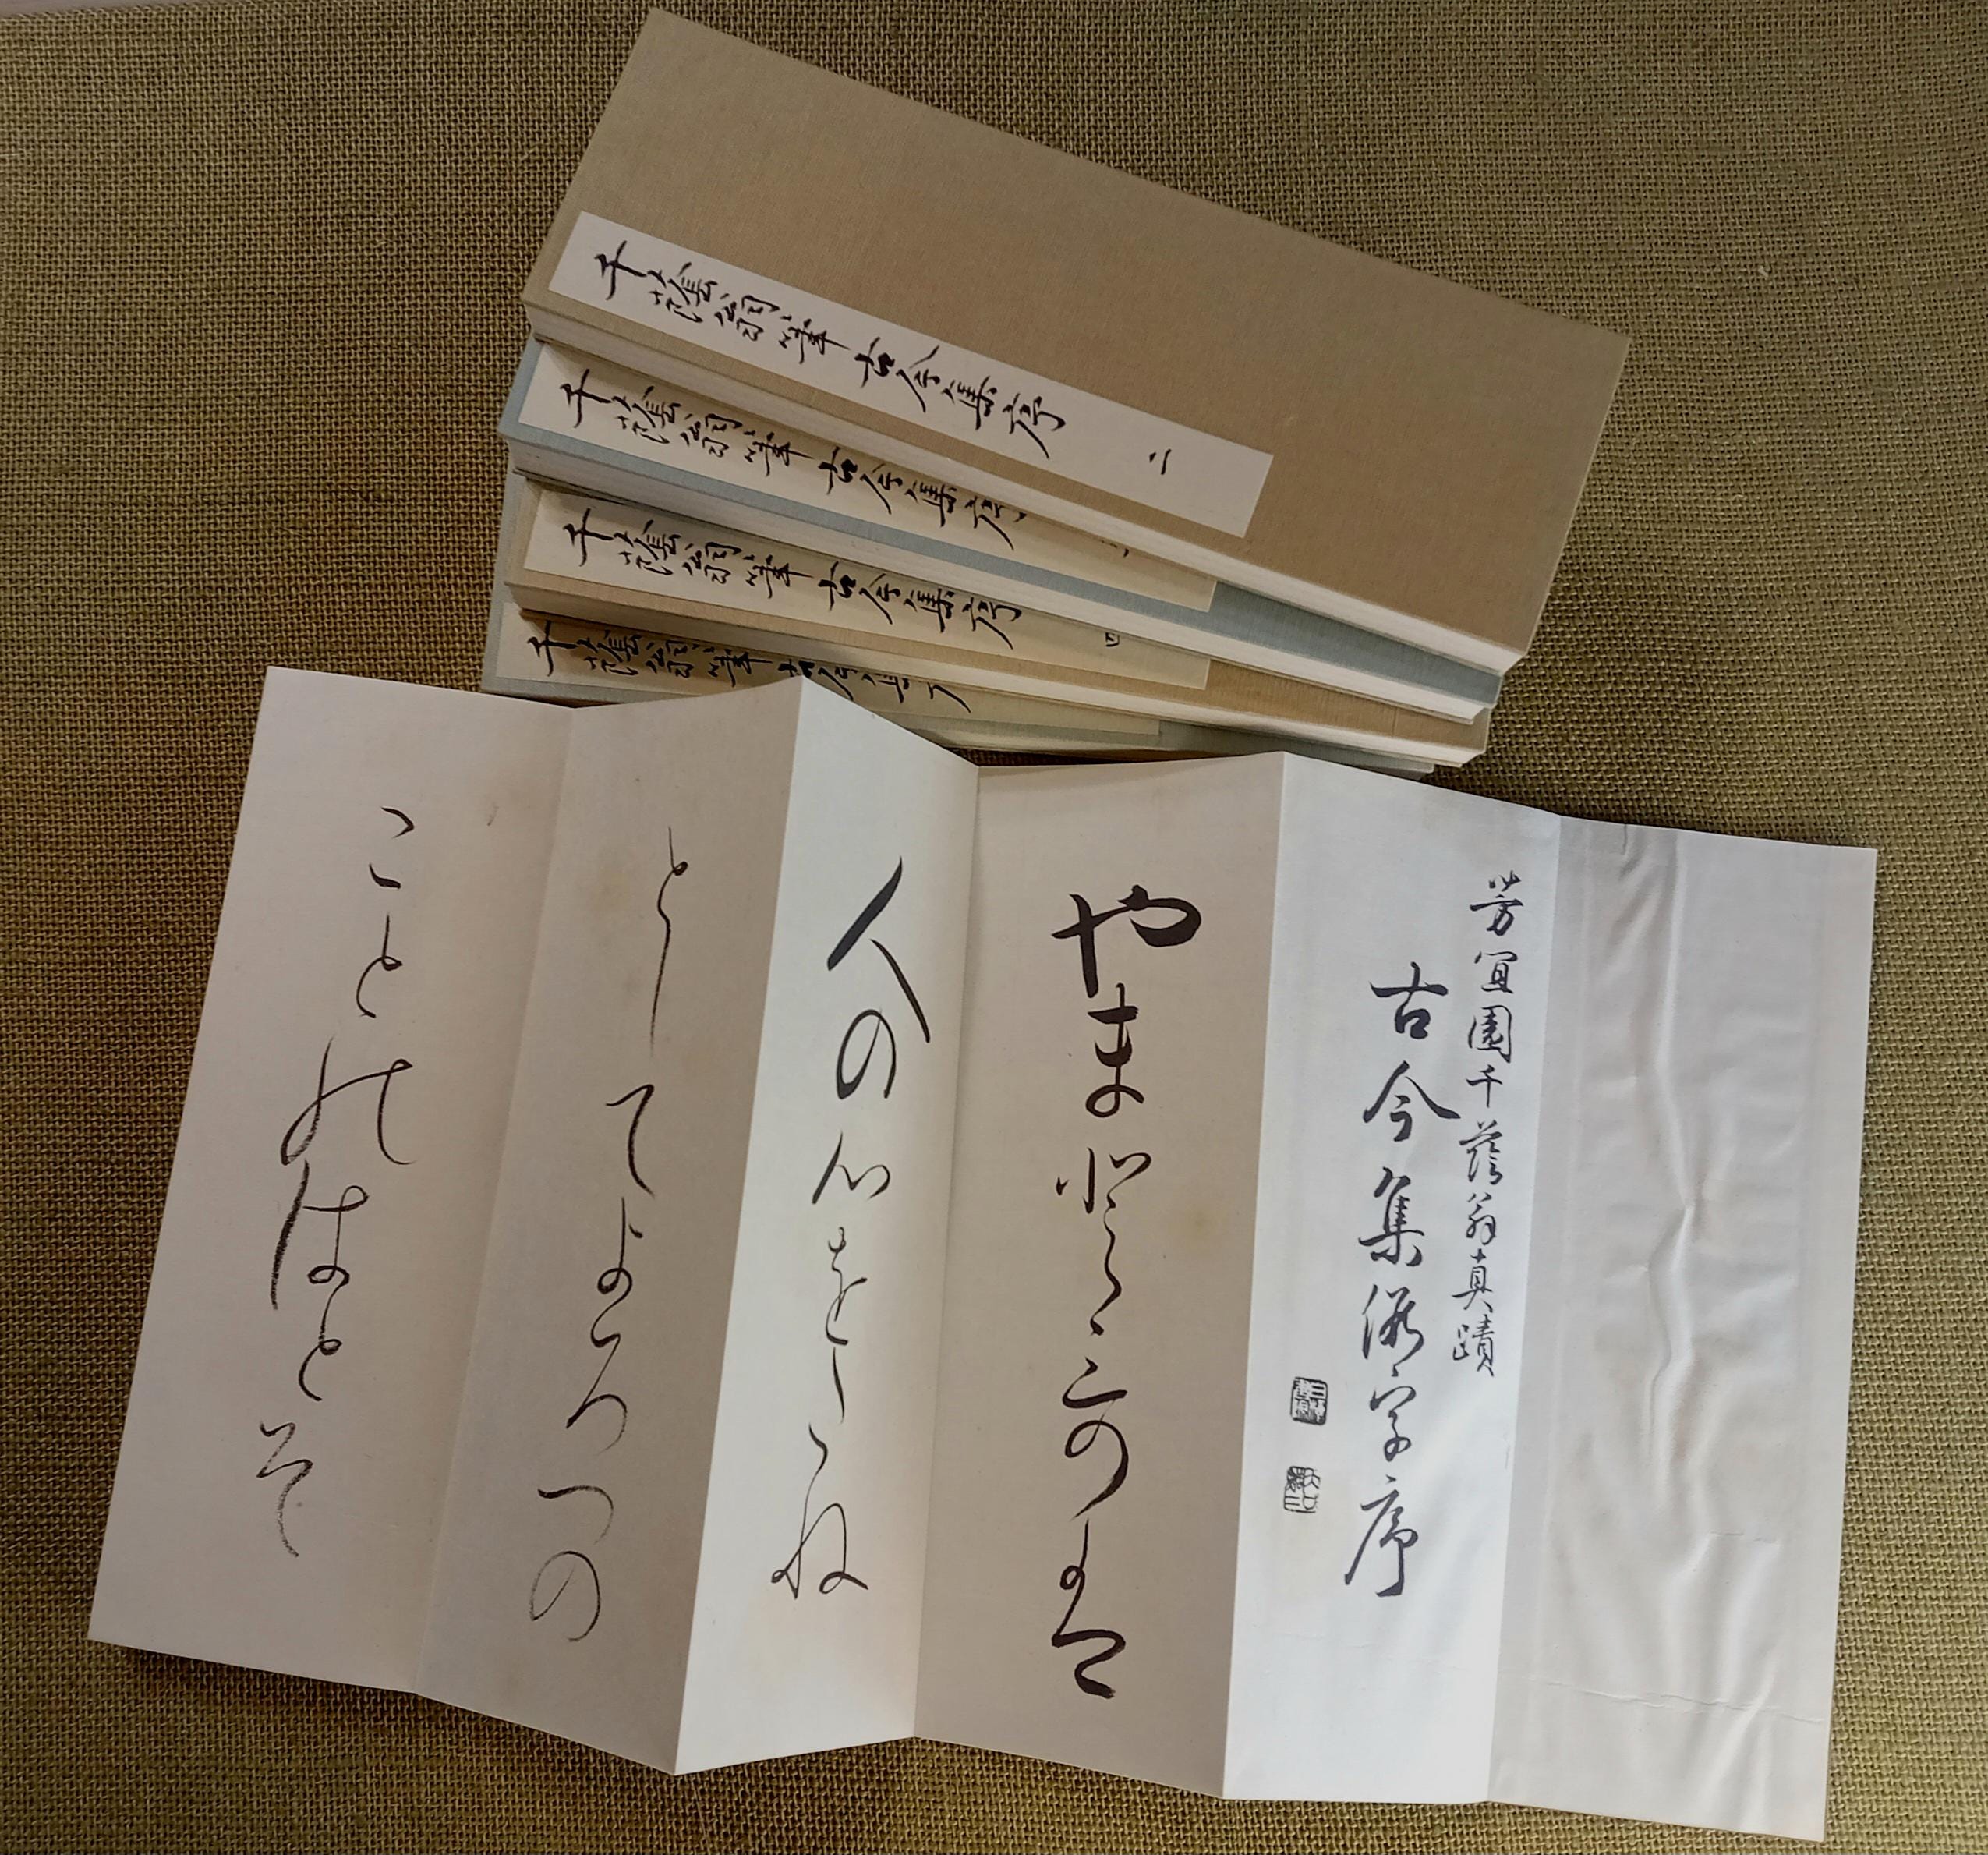 千蔭翁筆古今集序 二
千蔭翁筆古今集序
千蔭翁筆古今集序 四
千蔭翁筆古今集序
芳宜園千蔭翁真蹟
古今集假字序
やまとうたは
人の心をたね
としてよろつの
ことのはとそ